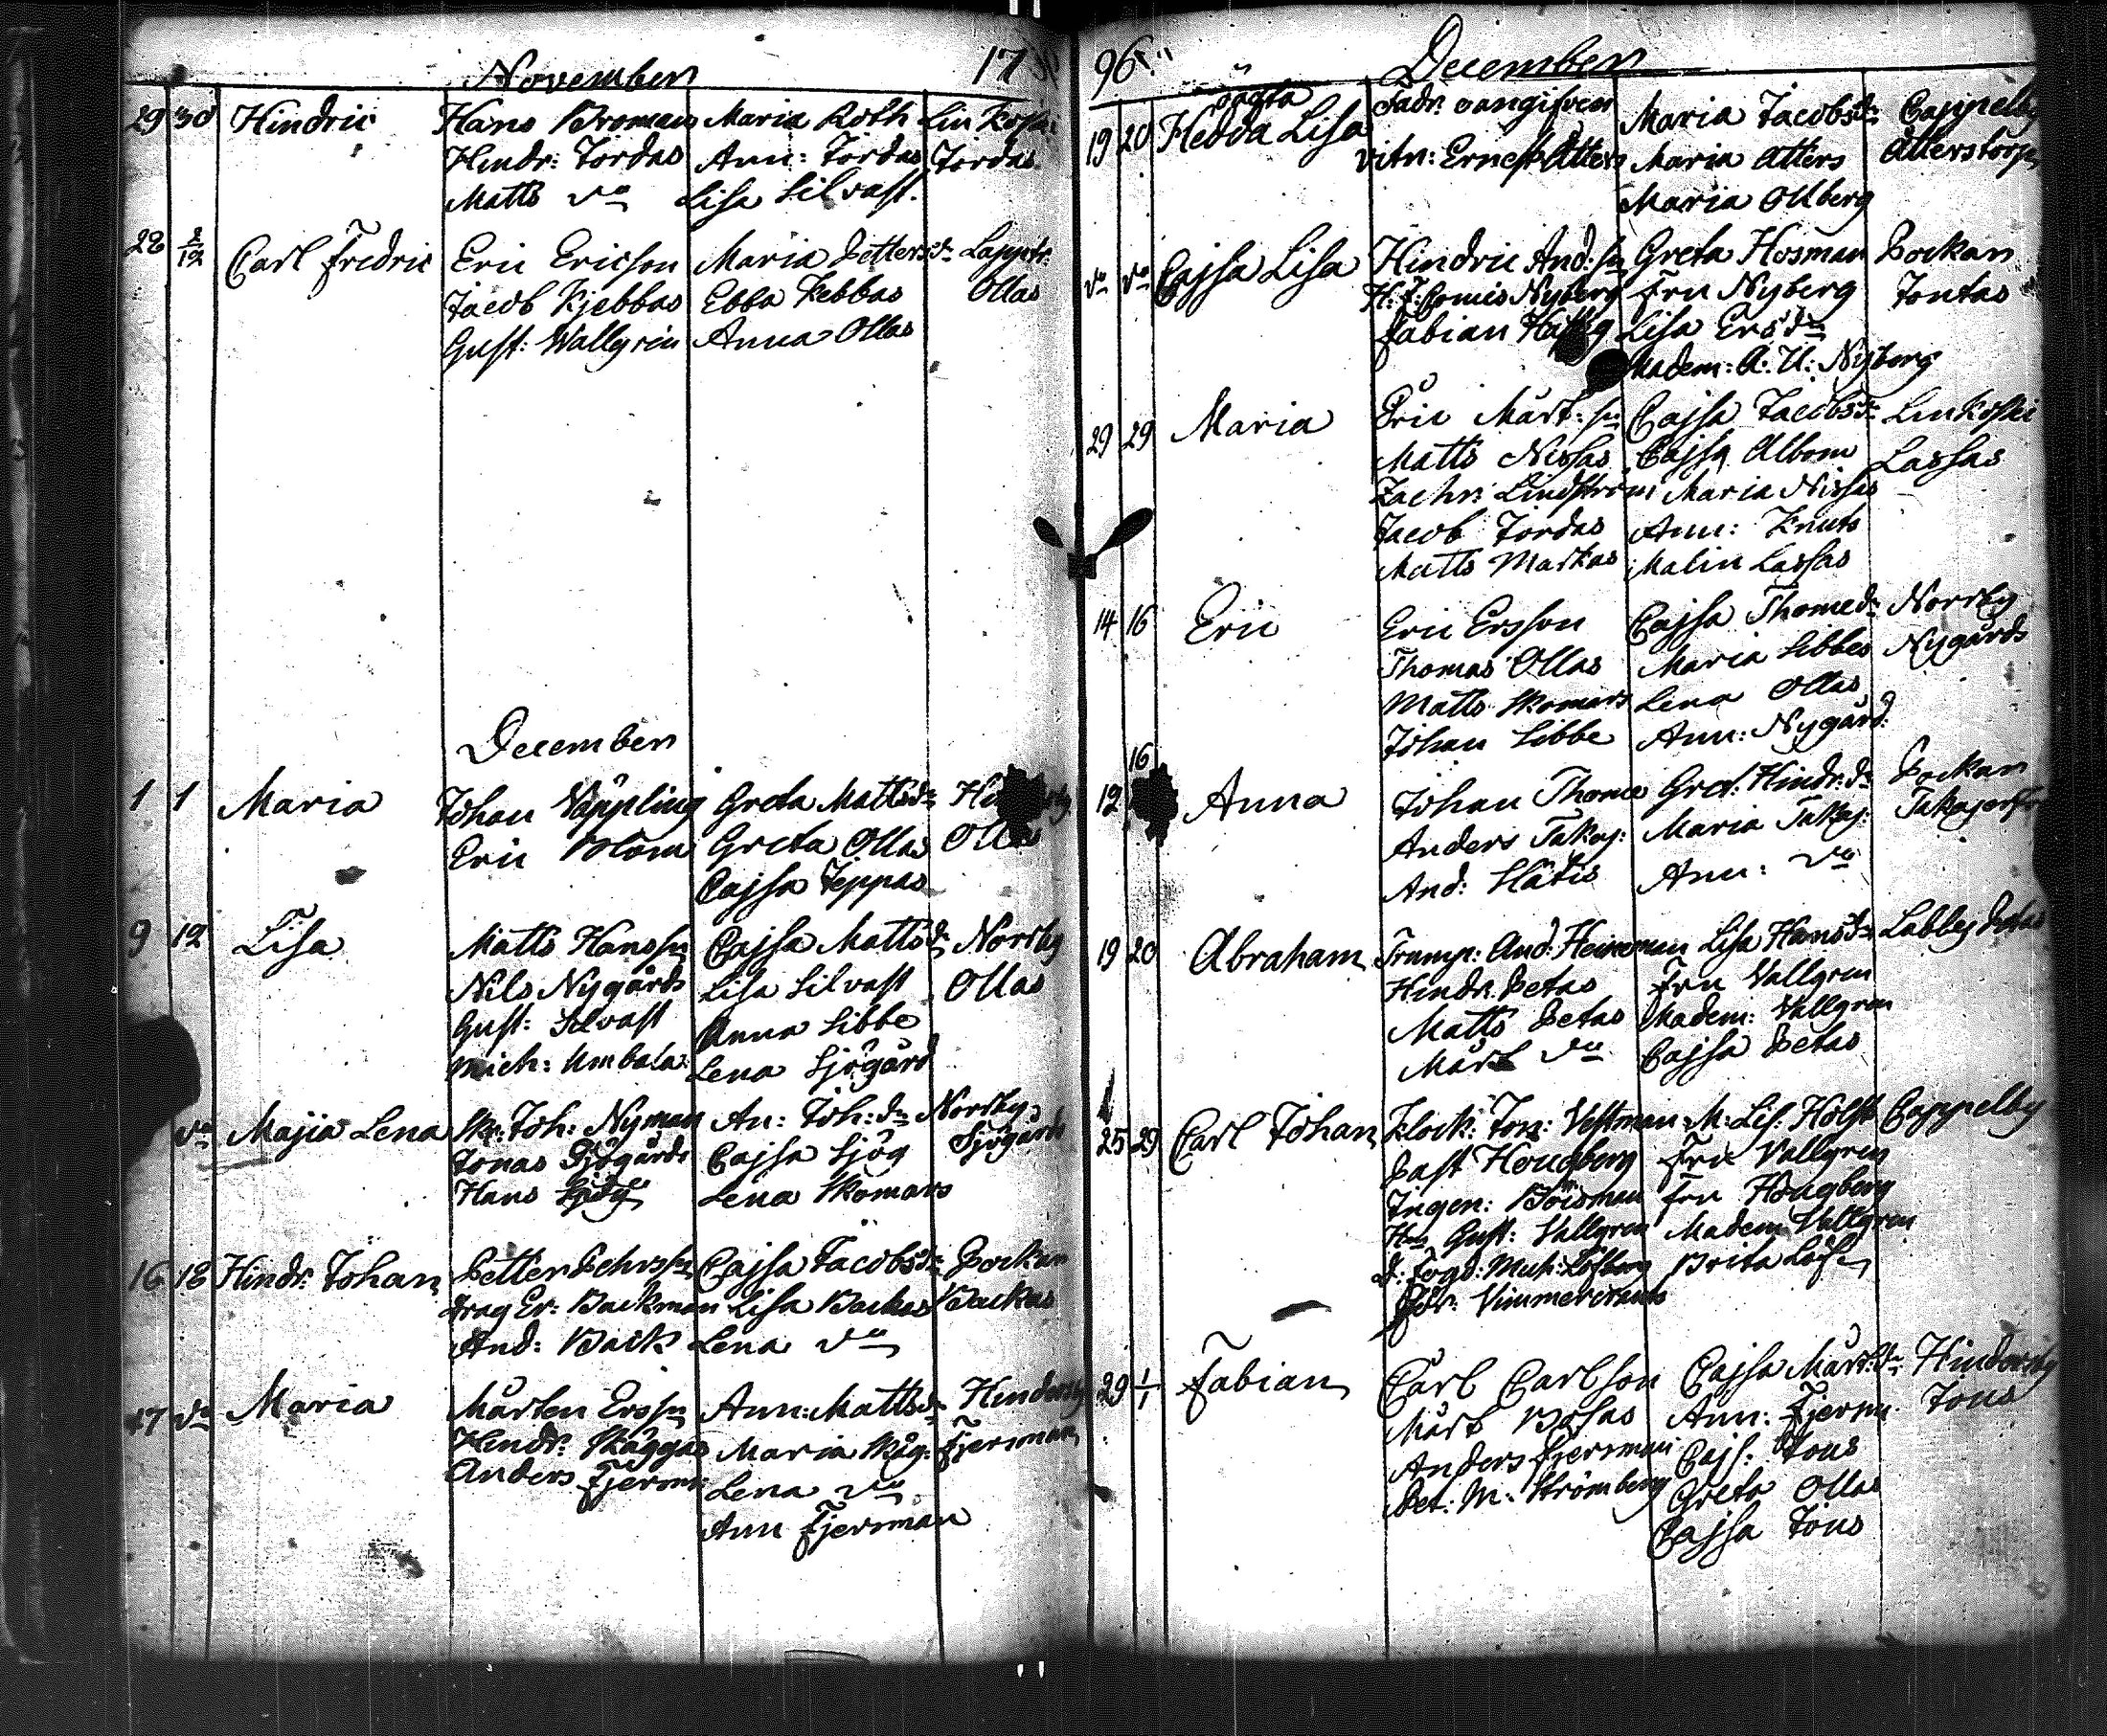 November 17
29 30 Hindric Hans Broman Maria Roth Linkoski
Hindr: Tordas Ann: Tordas Tordas
Matts do Lisa Silvast.
28 2/12 Carl Fredric Eric Ericson Maria Petters dr Lapptr:
Jacob Kjebbas Ebba Kebbas Ollas
Gust: Wallgrén Anna Ollas
December
1 1 Maria Johan Väppling Greta Matts dr
Eric Blom Greta Ollas Ollas
Cajsa Jeppas
9 12 Lisa Matts Hanssn Cajsa Matts dr Norrby
Nils Nygårds Lisa Silvast Ollas
Gust: Silvast Anna Sibbe
Mich: Umbala: Lena Sjögård
do Majia Lena Sk: Joh: Nyman An: Joh: dr Norrby
Jonas Sjögårds Cajsa Sjög Sjögårds
Hans Sjög Lena Skomars
16 18 Hindr: Johan Petter Pehrssn Cajsa Jacobs dr Påckan
Drag Er: Backman Lisa Backas Backas
And: Back Lena do
17 do Maria Mårten Erssn Ann: Matts dr Hindersby
Hindr: Skäggas Maria Skäg: Fjersman
Anders Fjersm: Lena do
Ann Fjersman
96 December
19 20 oägta Hedda Lisa Fadr: oangifven Maria Jacobs dr Cappelby
vitn: Ernest Atters Maria Atters Atterstorp
Maria Ollberg
do do Cajsa Lisa Hindric And: sn Greta Hosman Påckan
H: J: Comis Nyberg Fru Nyberg Jontas
Fabian Lisa Ers dr
Madem: A: U: Nyberg
29 29 Maria Eric Mårt: sn Cajsa Jacobs dr Linkoski
Matts Nissas Cajsa Albom Lassas
Zachr: Lindström Maria Nissas
Jacob Tordas Ann: Knuts
Matts Markas Malin Lassas
14 16 Eric Eric Ersson Cajsa Thome dr Norrby
Thomas Ollas Maria Sibbes Nygårds
Matts Skomars Lena Ollas
Johan Sibbe Ann: Nygård:
16
12 Anna Johan Thome Gret: Hindr: dr Påckan
Anders Takaj: Maria Takaj:
And: Slätis Ann: do
19 20 Abraham Trump: And: Heineman Lisa Hans dr Labby Petas
Hindr: Petas Fru Vallgren
Matts Petas Madem: Vallgren
Mårt do Cajsa Petas
25 29 Carl Johan Klock: Jon: Vestman M: Lis: Holst Cappelby
Past Hougberg Fru Vallgren
Ingen: Boisman Fru Hougberg
Hr Gust: Vallgren Madem Vallgren
d: Fogd: Mich: Löfberg Brita Löf
29 1/1 Fabian Carl Carlson Cajsa Mårt: dr Hindersby
Mårt Bosas Ann: Fjersm: Tous
Anders Fjersman Cajs: Tous
Pet: M: Strömberg Greta Ollas
Cajsa Tous